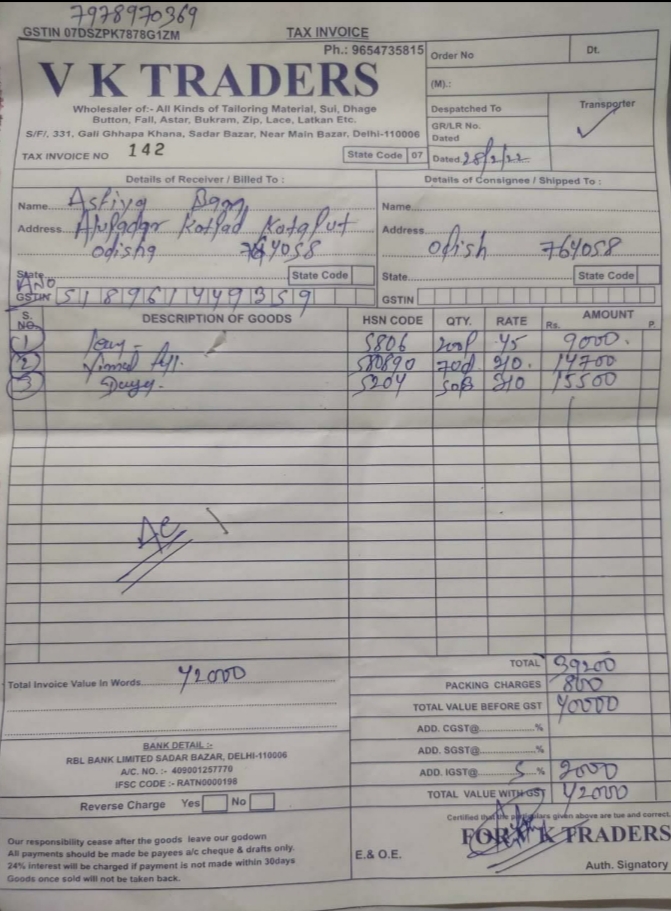 7978970369
GSTIN 07DSZPK7878G1ZM
TAX INVOICE
Ph.: 9654735815
V K TRADERS
Wholesaler of:- All Kinds of Tailoring Material, Sui, Dhage
Button, Fall, Astar, Bukram, Zip, Lace, Latkan Etc.
S/F/. 331, Gali Ghhapa Khana, Sadar Bazar, Near Main Bazar, Delhi-110006
TAX INVOICE NO 142
State Code 07
Order No Dt.
(M).:
Despatched To Transporter
GR/LR No.
Dated
Dated. 28/2/22
Details of Receiver / Billed To :
Name
Address Kotpad
odisha 764058
State State Code
ANO
GSTIN 518961449359
Details of Consignee / Shipped To :
Name
Address
Odish 764058
State State Code
GSTIN
S. NO. DESCRIPTION OF GOODS HSN CODE QTY. RATE AMOUNT Rs. P.
1 5806 45 9000.
2 210. 14700
3 5204 310 15500
TOTAL 39200
Total Invoice Value In Words 42000
PACKING CHARGES 800
TOTAL VALUE BEFORE GST 40000
ADD. CGST@ %
ADD. SGST@ %
ADD. IGST@ 5 % 2000
TOTAL VALUE WITH GST 42000
BANK DETAIL :-
RBL BANK LIMITED SADAR BAZAR, DELHI-110006
A/C. NO. :- 409001257770
IFSC CODE :- RATN0000198
Reverse Charge Yes No
Certified that the particulars given above are tue and correct.
FOR V K TRADERS
Our responsibility cease after the goods leave our godown
All payments should be made be payees a/c cheque & drafts only.
24% interest will be charged if payment is not made within 30days
Goods once sold will not be taken back.
E.& O.E.
Auth. Signatory